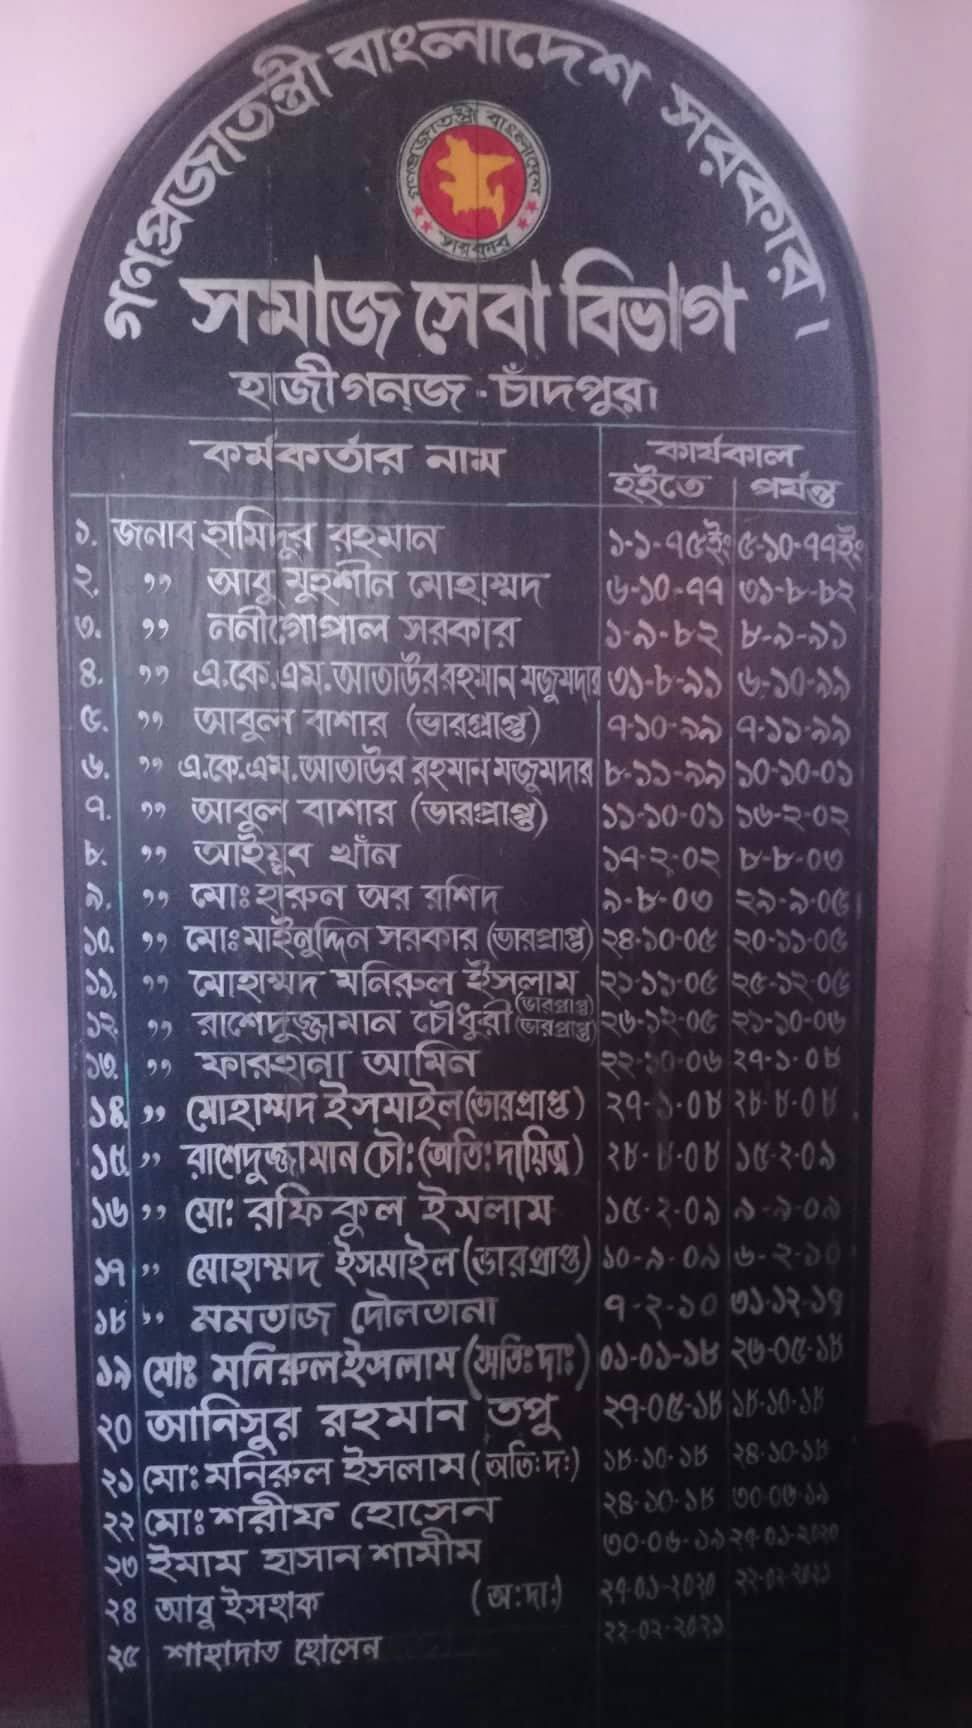 গণপ্রজাতন্ত্রী বাংলাদেশ সরকার।
গণপ্রজাতন্ত্রী বাংলাদেশ
সরকার
সমাজ সেবা বিভাগ
হাজীগন্জ - চাঁদপুর।
কর্মকর্তার নাম কার্যকাল
হইতে পর্যন্ত
১. জনাব হামিদুর রহমান ১-১-৭৫ইং ৫-১০-৭৭ইং
২. " আবু মুহশীন মোহাম্মদ ৬-১০-৭৭ ৩১-৮-৮২
৩. " ননীগোপাল সরকার ১-৯-৮২ ৮-৯-৯১
৪. " এ.কে.এম.আতাউর রহমান মজুমদার ৩১-৮-৯১ ৬-১০-৯৯
৫. " আবুল বাশার (ভারপ্রাপ্ত) ৭-১০-৯৯ ৭-১১-৯৯
৬. " এ.কে.এম.আতাউর রহমান মজুমদার ৮-১১-৯৯ ১০-১০-০১
৭. " আবুল বাশার (ভারঃপ্রাপ্ত) ১১-১০-০১ ১৬-২-০২
৮. " আইয়ুব খাঁন ১৭-২-০২ ৮-৮-০৩
৯. " মোঃ হারুন অর রশিদ ৯-৮-০৩ ২৯-৯-০৫
১০. " মোঃ মাইনুদ্দিন সরকার (ভারপ্রাপ্ত) ২৪-১০-০৫ ২০-১১-০৫
১১. " মোহাম্মদ মনিরুল ইসলাম (ভারপ্রাপ্ত) ২১-১১-০৫ ২৫-১২-০৫
১২. " রাশেদুজ্জামান চৌধুরী (ভারপ্রাপ্ত) ২৬-১২-০৫ ২১-১০-০৬
১৩. " ফারহানা আমিন ২২-১০-০৬ ২৭-১-০৮
১৪. " মোহাম্মদ ইসমাইল (ভারপ্রাপ্ত) ২৭-১-০৮ ২৮-৮-০৮
১৫. " রাশেদুজ্জামান চৌ: (অতি: দায়িত্ব) ২৮-৮-০৮ ১৫-২-০৯
১৬ " মো: রফিকুল ইসলাম ১৫-২-০৯ ৯-৯-০৯
১৭ " মোহাম্মদ ইসমাইল (ভারপ্রাপ্ত) ১০-৯-০৯ ৬-২-১০
১৮ " মমতাজ দৌলতানা ৭-২-১০ ৩১-১২-১৭
১৯ মোঃ মনিরুল ইসলাম (অতি: দাঃ) ০১-০১-১৮ ২৬-০৫-১৮
২০ আনিসুর রহমান তপু ২৭-০৫-১৮ ১৮-১০-১৮
২১ মো: মনিরুল ইসলাম (অতি:দ:) ১৮-১০-১৮ ২৪-১০-১৮
২২ মোঃ শরীফ হোসেন ২৪-১০-১৮ ৩০-০৬-১৯
২৩ ইমাম হাসান শামীম ৩০-০৬-১৯ ২৭-০১-২০২০
২৪ আবু ইসহাক (অ:দা:) ২৭-০১-২০২০ ২২-০২-২০২১
২৫ শাহাদাত হোসেন ২২-০২-২০২১